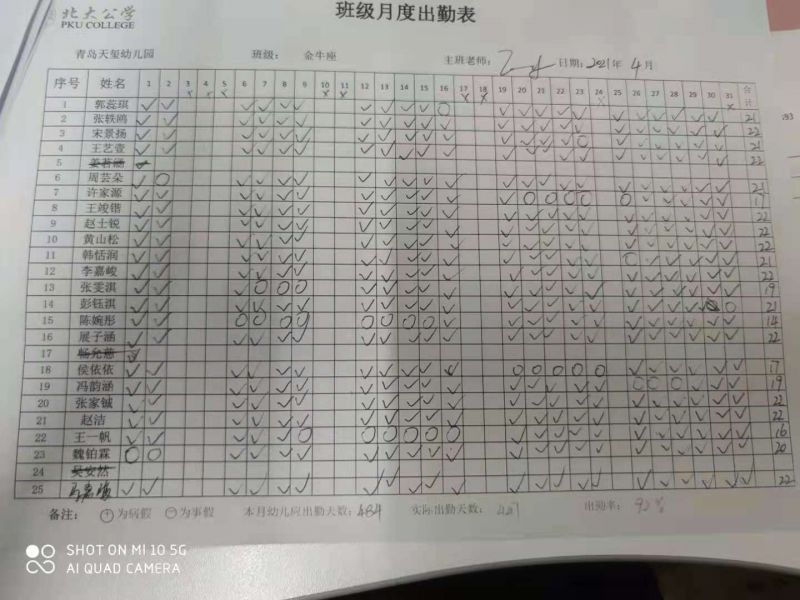 北大公学
PKU COLLEGE
班级月度出勤表
青岛天玺幼儿园 班级: 金牛座 主班老师: 日期: 2021年 4月
序号 姓名 1 2 3 4 5 6 7 8 9 10 11 12 13 14 15 16 17 18 19 20 21 22 23 24 25 26 27 28 29 30 31 合计
1 郭蕊琪 21
2 张轶鸥 22
3 宋景扬 21
4 王艺萱 22
5
6 周芸朵 21
7 许家源 17
8 王竣锴 22
9 赵士锐 22
10 黄山松 22
11 韩恬润 21
12 李嘉峻 22
13 张雯淇 19
14 彭钰淇 21
15 陈婉彤 14
16 展子涵 22
17
18 侯依依 17
19 冯韵涵 19
20 张家铖 22
21 赵洁 22
22 王一帆 16
23 魏铂霖 20
24 吴安然
25 22
备注: 为病假 为事假 本月幼儿应出勤天数: 484 实际出勤天数: 出勤率:
SHOT ON MI 10 5G
AI QUAD CAMERA